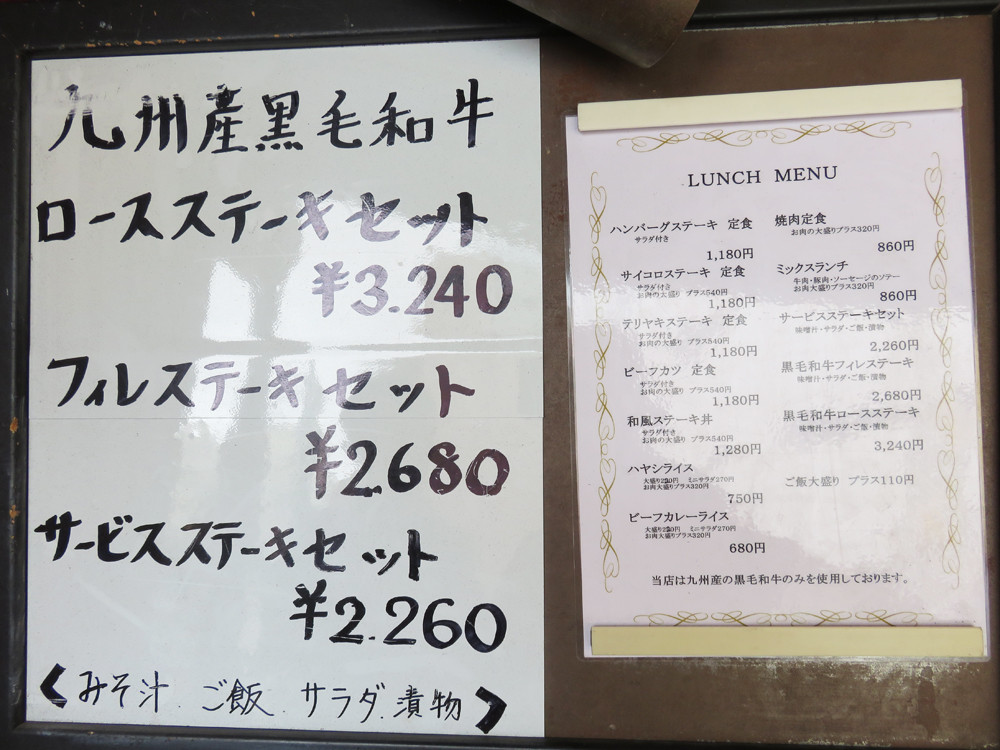 九州産黒毛和牛
ロースステーキセット
¥3.240
フィレステーキセット
¥2.680
サービスステーキセット
¥2.260
<みそ汁.ご飯.サラダ.漬物>
LUNCH MENU
ハンバーグステーキ 定食
サラダ付き
1,180円
サイコロステーキ 定食
サラダ付き
お肉の大盛り プラス540円
1,180円
テリヤキステーキ 定食
サラダ付き
お肉の大盛り プラス540円
1,180円
ビーフカツ 定食
サラダ付き
お肉の大盛り プラス540円
1,180円
和風ステーキ丼
サラダ付き
お肉の大盛り プラス540円
1,280円
ハヤシライス
大盛り220円 ミニサラダ270円
お肉大盛りプラス320円
750円
ビーフカレーライス
大盛り220円 ミニサラダ270円
お肉大盛りプラス320円
680円
焼肉定食
お肉の大盛りプラス320円
860円
ミックスランチ
牛肉・豚肉・ソーセージのソテー
お肉大盛りプラス320円
860円
サービスステーキセット
味噌汁・サラダ・ご飯・漬物
2,260円
黒毛和牛フィレステーキ
味噌汁・サラダ・ご飯・漬物
2,680円
黒毛和牛ロースステーキ
味噌汁・サラダ・ご飯・漬物
3,240円
ご飯大盛り プラス110円
当店は九州産の黒毛和牛のみを使用しております。